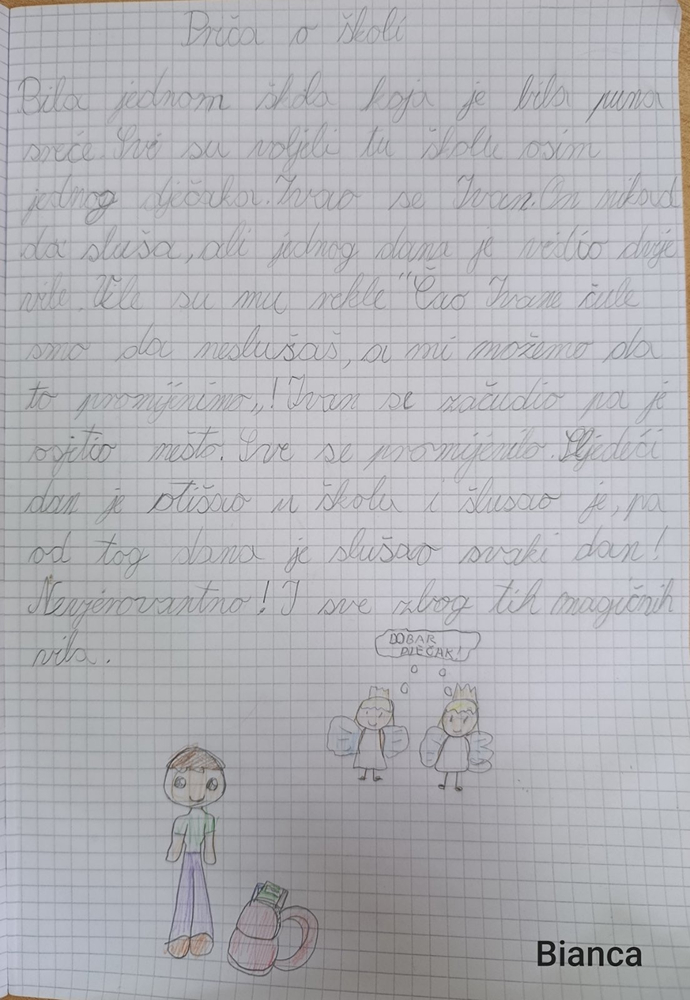 Priča o školi
Bila jednom škola koja je bila puna
sreće. Svi su voljeli tu školu osim
jednog dječaka. Zvao se Ivan. On nikad
da sluša, ali jednog dana je vidio dvije
vile. Vile su mu rekle "Ćao Ivane čule
smo da neslušaš, a mi možemo da
to promijinimo„! Ivan se začudio pa je
osjetio nešto. Sve se promijenilo. Sljedeći
dan je otišao u školu i slušao je, pa
od tog dana je slušao svaki dan!
Nevjerovantno! I sve zbog tih magičnih
vila.
DOBAR
DJEČAK!
Bianca